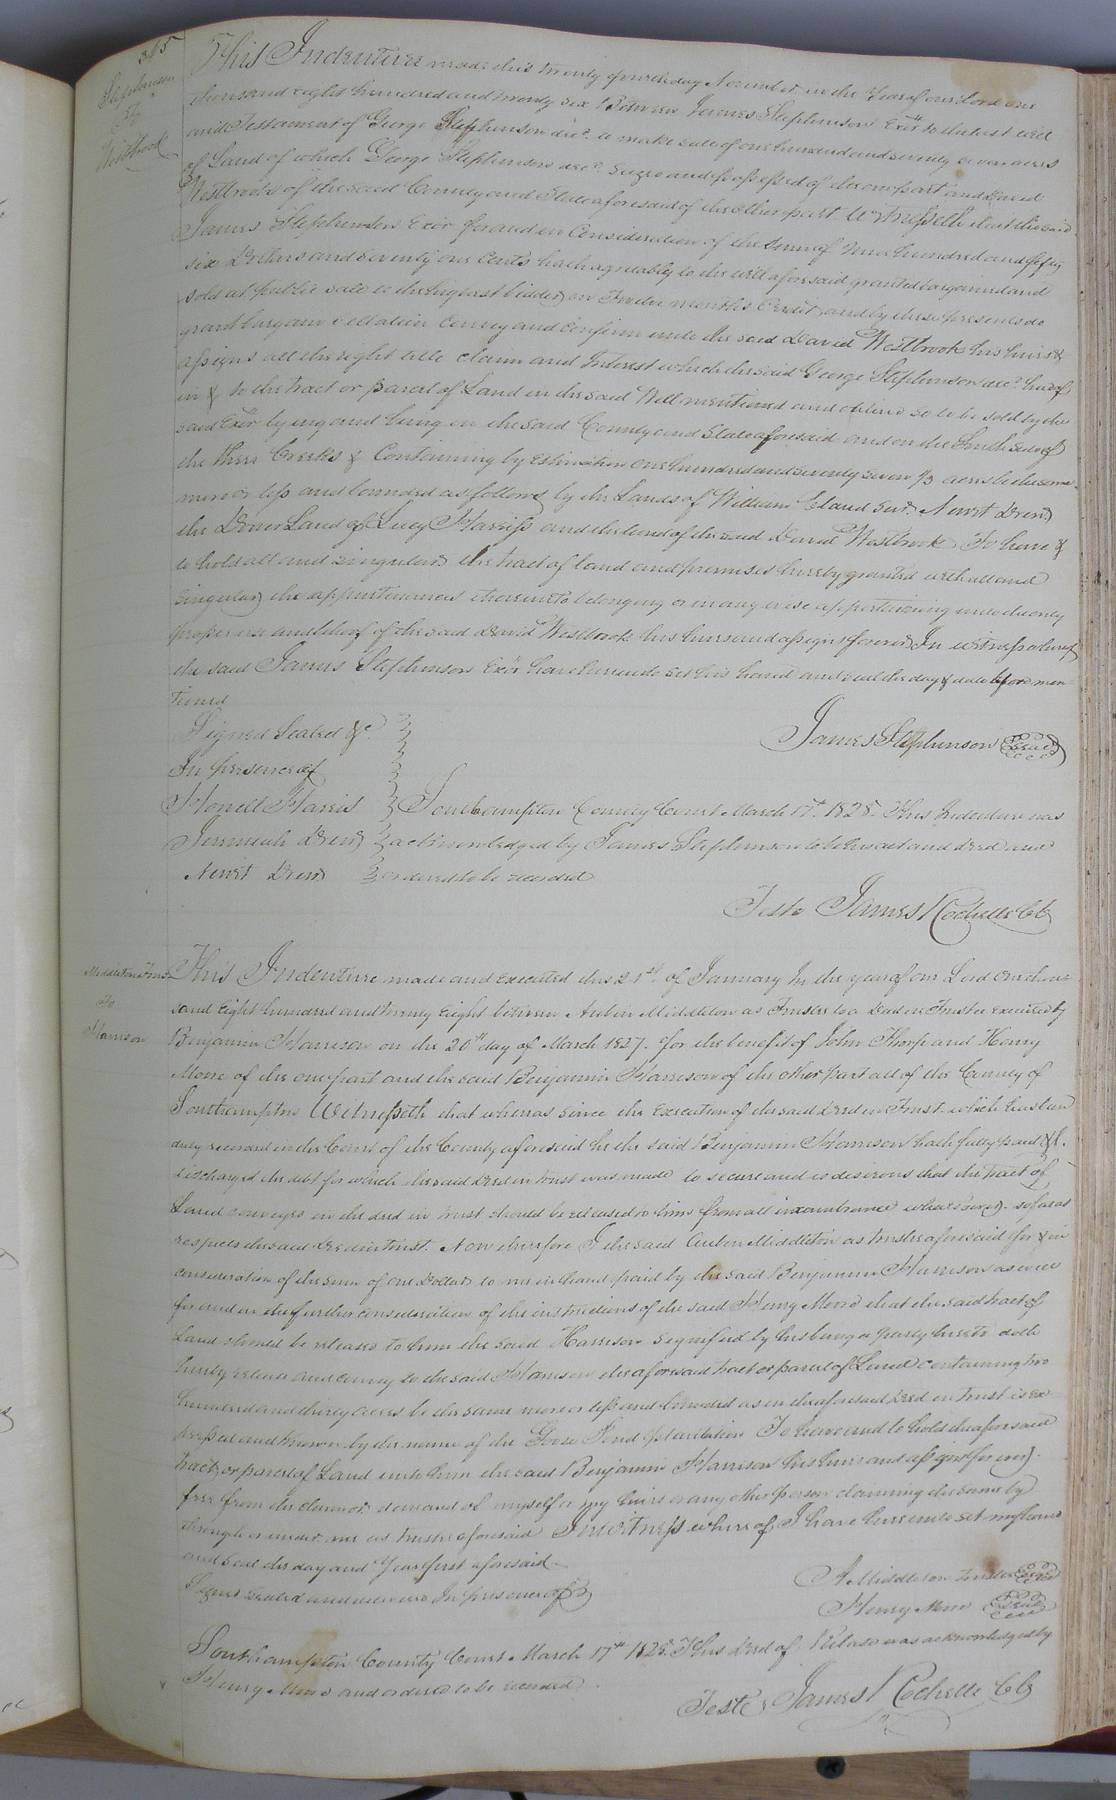 365
Stephenson
To
Westbrook
This Indenture made this twenty fourth day November in the Year of our Lord one
thousand eight hundred and twenty six Between James Stephenson Exor to the last will
and Testament of George Stephenson decd. to make sale of one hundred and seventy seven acres
of Land of which George Stephenson decd. Seized and possessed of the one part and David
Westbrook of the said County and State aforesaid of the other part Witnesseth that the said
James Stephenson Exor for and in Consideration of the Sum of Nine hundred and fifty
six Dollars and seventy one Cents hath agreeably to the will aforesaid granted bargained and
sold at public sale to the highest bidder on Twelve months Credit, and by these presents do
grant bargain sell alien convey and confirm unto the said David Westbrook his heirs &
assigns all the right title claim and Interest which the said George Stephenson decd. had of
in & to the tract or parcel of Land in the said Will mentioned and so to be sold by the
said Exor lying and being in the said County and State aforesaid and on the South side of
the three Creeks & Containing by Estimation one hundred and seventy seven 1/3 acres be the same
more or less and bounded as follows by the Lands of William Eland Senr. Newit Drew
the Dower Land of Lucy Harriss and the land of the said David Westbrook To have &
to hold all and singular the tract of land and premises hereby granted with all and
singular the appurtenances thereunto belonging or in any wise appertaining unto the only
proper use and behoof of the said David Westbrook his heirs and assigns forever In witness whereof
the said James Stephenson Exor have hereunto set his hand and seal the day & date before men
tioned
Signed Sealed &c.
James Stephenson Seal
In presence of
Howell Harris
Southampton County Court March 17th 1828. This Indenture was
Jeremiah Drew
acknowledged by James Stephenson to be his act and deed and
Newit Drew
ordered to be recorded
Teste James Rochelle Clk
Middleton Trustee
To
Harrison
This Indenture made and executed this 21st of January In the year of our Lord One thou
sand Eight hundred and twenty Eight between Auben Middleton as Trustee to a deed in Trust as executed by
Benjamin Harrison on the 20th day of March 1827. for the benefit of John Thorp and Henry
Moore of the one part and the said Benjamin Harrison of the other part all of the County of
Southampton Witnesseth that whereas since the Execution of the said deed in Trust which has been
duly recorded in the Court of the County aforesaid he the said Benjamin Harrison hath fully paid &
discharged the debt for which the said deed in trust was made to secure and is desirous that the tract of
Land conveyed in the deed in trust should be released to him from all incumbrance whatsoever so far as
respects the said deed in trust. Now therefore I the said Auben Middleton as trustee aforesaid for & in
consideration of the sum of one Dollar to me in hand paid by the said Benjamin Harrison as well
for and in the further consideration of the instructions of the said Henry Moore that the said tract of
Land should be released to him the said Harrison signified by his being a party hereto doth
hereby release and convey to the said Harrison the aforesaid tract or parcel of Land containing two
hundred and thirty acres be the same more or less and bounded as in the aforesaid deed in trust is ex
pressed and known by the name of the Goose Pond plantation To have and to hold the aforesaid
tract or parcel of Land unto him the said Benjamin Harrison his heirs and assigns forever
free from the claim or demand of myself or my heirs or any other person claiming the same by
through or under me as trustee aforesaid In witness whereof I have hereunto set my hand
and seal the day and Year first aforesaid
Signed sealed and delivered In presence of
A Middleton Trustee Seal
Henry Moore Seal
Southampton County Court March 17th 1828. This deed of Release was acknowledged by
Henry Moore and ordered to be recorded
Teste James Rochelle Clk